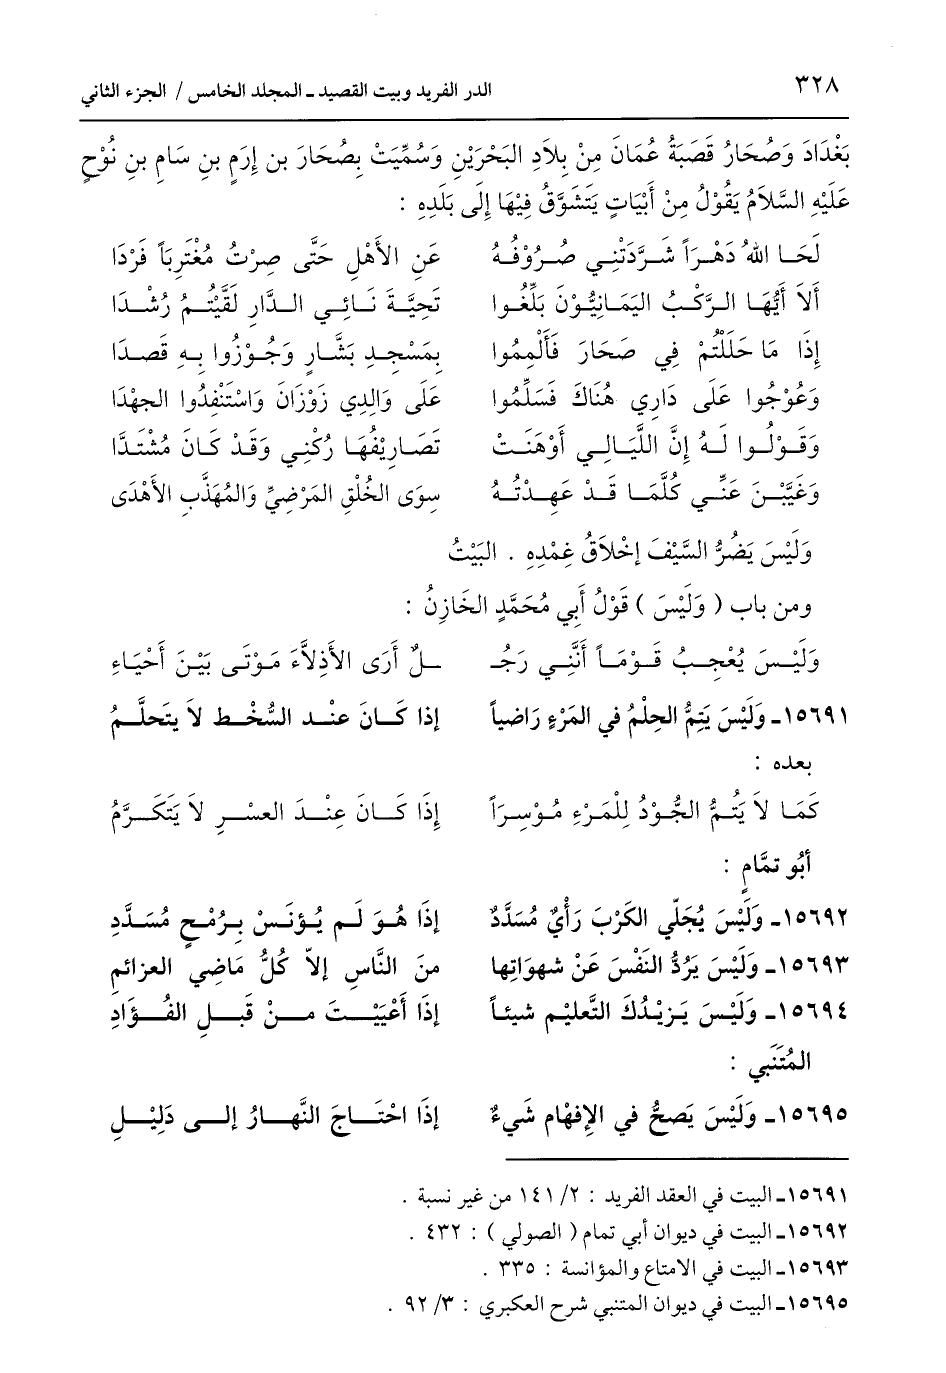 ٣٢٨ الدر الفريد وبيت القصيد ـ المجلد الخامس / الجزء الثاني
بَغْدَادَ وَصُحَارُ قَصَبَةُ عُمَانَ مِنْ بِلاَدِ البَحْرَيْنِ وَسُمِّيَتْ بِصُحَارَ بن إِرَمٍ بنِ سَامِ بنِ نُوْحٍ
عَلَيْهِ السَّلاَمُ يَقُوْلُ مِنْ أَبْيَاتٍ يَتَشَوَّقُ فِيْهَا إِلَى بَلَدِهِ :
لَحَا اللهُ دَهْراً شَرَّدَتْنِي صُرُوْفُهُ عَنِ الأَهْلِ حَتَّى صِرْتُ مُغْتَرِباً فَرْدَا
أَلاَ أَيُّهَا الرَّكْبُ اليَمَانِيُّوْنَ بَلِّغُوا تَحِيَّةَ نَائِي الدَّارِ لَقَّيْتُمُ رُشْدَا
إِذَا مَا حَلَلْتُمْ فِي صَحَارَ فَأَلْمِمُوا بِمَسْجِدِ بَشَّارٍ وَجُوْزُوا بِهِ قَصدَا
وَعُوْجُوا عَلَى دَارِي هُنَاكَ فَسَلِّمُوا عَلَى وَالِدِي زَوْزَانَ وَاسْتَنْفِدُوا الجهْدَا
وَقُوْلُوا لَهُ إِنَّ اللَّيَالِي أَوْهَنَتْ تَصَارِيْفُهَا رُكْنِي وَقَدْ كَانَ مُشْتَدَّا
وَغَيَّبْنَ عَنِّي كُلَّمَا قَدْ عَهِدْتُهُ سِوَى الخُلْقِ المَرْضِيِّ وَالمُهَذَّبِ الأَهْدَى
وَلَيْسَ يَضُرُّ السَّيْفَ إِخْلاَقُ غِمْدِهِ . البَيْتُ
ومن باب ( وَلَيْسَ ) قَوْلُ أَبِي مُحَمَّدٍ الخَازِنُ :
وَلَيْسَ يُعْجِبُ قَوْمَاً أَنَّنِي رَجُـ ـلٌ أَرَى الأَذِلاَّءَ مَوْتَى بَيْنَ أَحْيَاءِ
١٥٦٩١ـ وَلَيْسَ يَتِمُّ الحِلْمُ في المَرْءِ رَاضِياً إذا كَانَ عِنْد السُّخْطِ لاَ يَتَحلَّمُ
بعده :
كَمَا لاَ يَتُمُّ الجُوْدُ لِلْمَرْءِ مُوْسِرَاً إِذَا كَانَ عِنْدَ العسْرِ لاَ يَتَكَرَّمُ
أَبُو تمَّامٍ :
١٥٦٩٢ـ وَلَيْسَ يُجَلِّي الكَرْبَ رَأْيٌ مُسَدَّدٌ إِذَا هُوَ لَم يُؤنَسْ بِرُمْحٍ مُسَدَّدِ
١٥٦٩٣ـ وَلَيْسَ يَرُدُّ النَفْسَ عَنْ شهوَاتِها منَ النَّاسِ إلاّ كُلُّ مَاضِي العزائم
١٥٦٩٤ـ وَلَيْسَ يَزيْدُكَ التَّعليْم شيئاً إذا أَعْيَيْتَ منْ قَبلِ الفُؤَادِ
المُتَنَبي :
١٥٦٩٥ـ وَلَيْسَ يَصحُّ في الإفهَام شَيءٌ إذَا احْتَاجَ النَّهارُ إلى دَلِيْلِ
١٥٦٩١ـ البيت في العقد الفريد : ٢/ ١٤١ من غير نسبة .
١٥٦٩٢ـ البيت في ديوان أبي تمام ( الصولي ) : ٤٣٢ .
١٥٦٩٣ـ البيت في الامتاع والمؤانسة : ٣٣٥ .
١٥٦٩٥ـ البيت في ديوان المتنبي شرح العكبري : ٣/ ٩٢ .